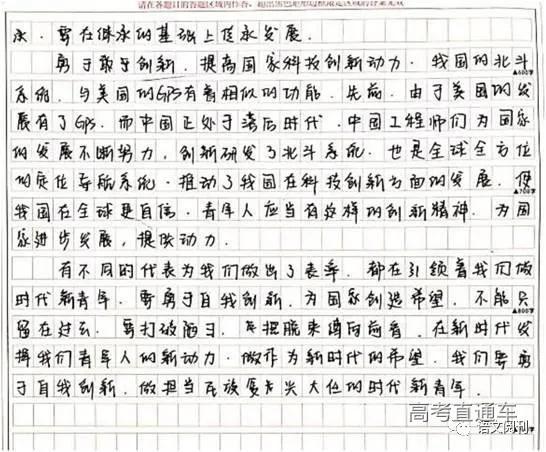 请在各题目的答题区域内作答，超出黑色矩形边框限定区域的答案无效
承．要在继承的基础上传承发展．
勇于敢于创新．提高国家科技创新动力．我国的北斗
▲600字
系统．与美国的GPS有着相似的功能．先前．由于美国的发
展有了GPS．而中国正处于落后时代．中国工程师们为国家
的发展不断努力，创新研发了北斗系统．也是全球全方位
的定位导航系统．推动了我国在科技创新方面的发展．使
▲700字
我国在全球更自信．青年人应当有这样的创新精神．为国
家进步发展，提供动力．
有不同的代表为我们做出了表率．都在引领着我们做
时代新青年．要勇于自我创新．为国家创造希望．不能只
▲800字
留在过去．要打破陋习．在新时代发
挥我们青年人的新动力．做作为新时代的希望．我们要勇
于自我创新．做担当民族复兴大位的时代新青年．
高考直通车
语文阅刊